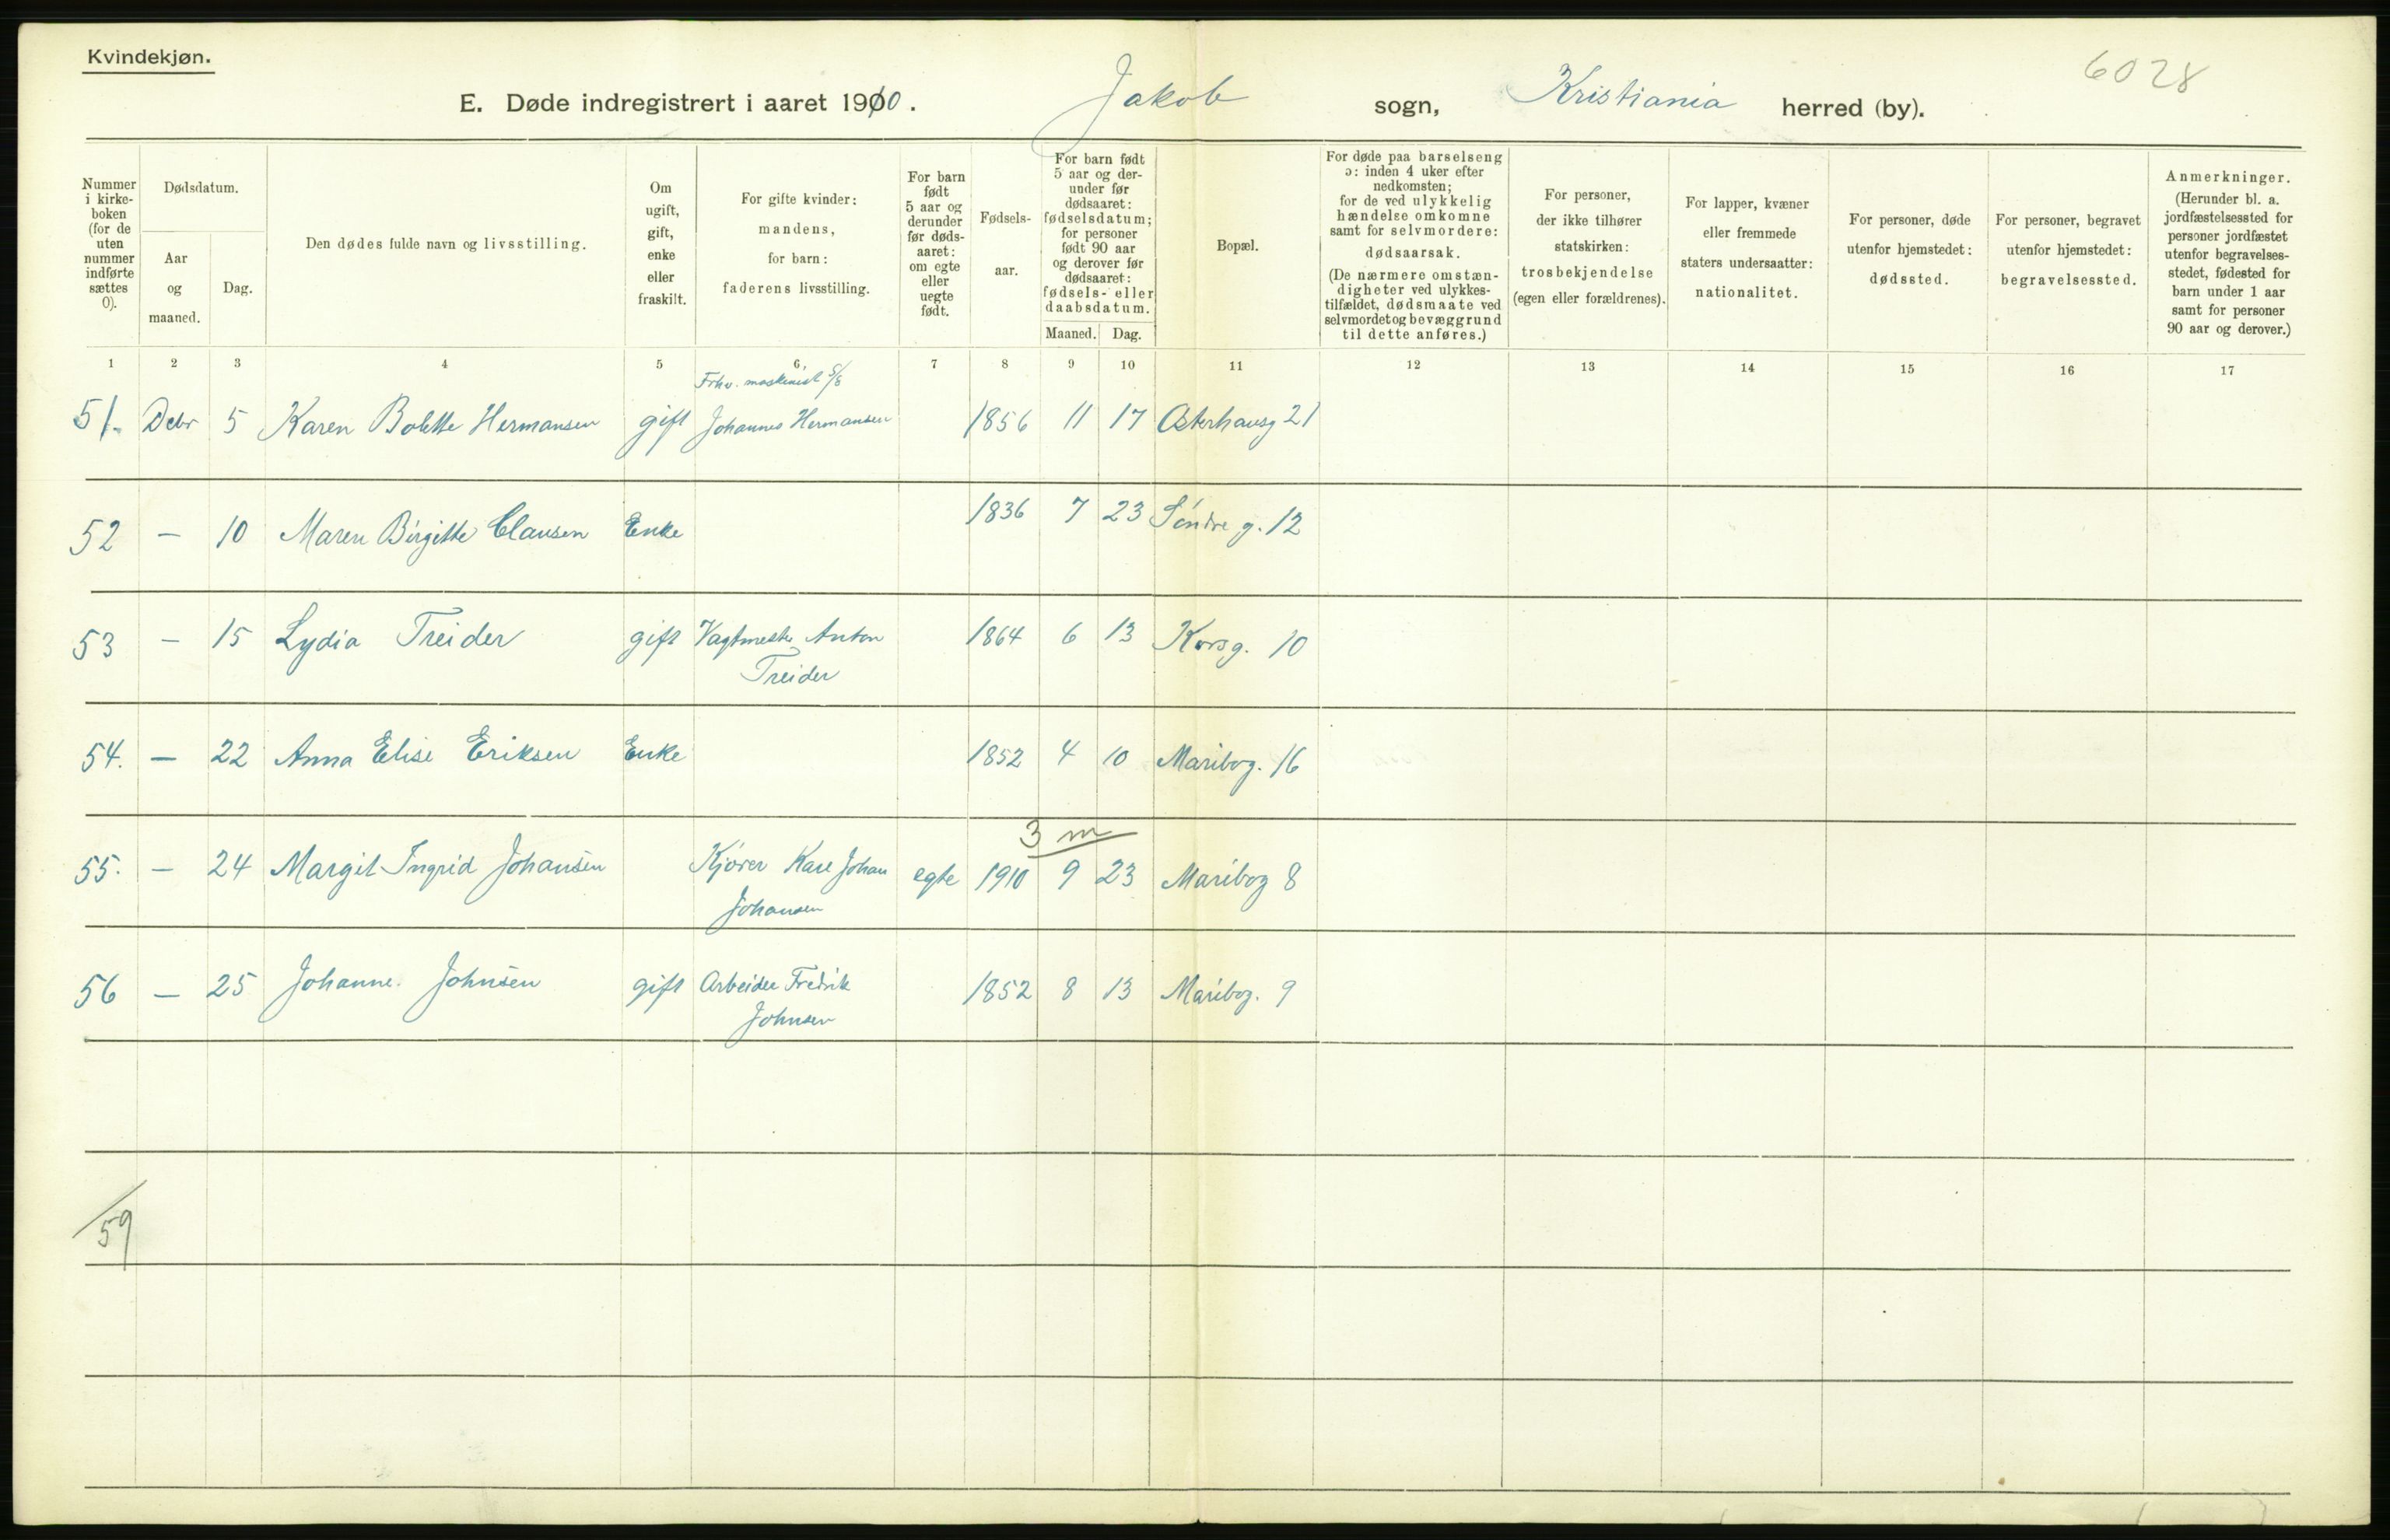 Kvindekjøn.
6028
E. Døde indregistrert i aaret 1910. Jakob sogn, Kristiania herred (by).
Nummer i kirke-boken (for de uten nummer indførte sættes 0).
Dødsdatum.
Aar og maaned.
Dag.
Den dødes fulde navn og livsstilling.
Om ugift, gift, enke eller fraskilt.
For gifte kvinder: mandens, for barn: faderens livsstilling.
For barn født 5 aar og derunder før døds-aaret: om egte eller uegte født.
Fødsels-aar.
For barn født 5 aar og der-under før dødsaaret: fødselsdatum; for personer født 90 aar og derover før dødsaaret: fødsels- eller daabsdatum.
Maaned. Dag.
Bopæl.
For døde paa barselseng ɔ: inden 4 uker efter nedkomsten; for de ved ulykkelig hændelse omkomne samt for selvmordere: dødsaarsak. (De nærmere omstæn-digheter ved ulykkes-tilfældet, dødsmaate ved selvmordet og bevæggrund til dette anføres.)
For personer, der ikke tilhører statskirken: trosbekjendelse (egen eller forældrenes).
For lapper, kvæner eller fremmede staters undersaatter: nationalitet.
For personer, døde utenfor hjemstedet: dødssted.
For personer, begravet utenfor hjemstedet: begravelsessted.
Anmerkninger. (Herunder bl. a. jordfæstelsessted for personer jordfæstet utenfor begravelses-stedet, fødested for barn under 1 aar samt for personer 90 aar og derover.)
1 2 3 4 5 6 7 8 9 10 11 12 13 14 15 16 17
Frhv. maskinist
51. Debr 5 Karen Bolette Hermansen gift Johannes Hermansen 1856 11 17 Osterhausg 21
52 — 10 Maren Birgitte Clausen Enke 1836 7 23 Søndre g. 12
53 — 15 Lydia Treider gift Vagtmester Anton 1864 6 13 Korsg. 10
Treider
54. — 22 Anna Elise Eriksen Enke 1852 4 10 Maribog. 16
3 m
55. — 24 Margit Ingrid Johansen Kjører Karl Johan egte 1910 9 23 Maribog 8
Johansen
56 — 25 Johanne Johnsen gift Arbeider Fredrik 1852 8 13 Maribog. 9
Johnsen
59